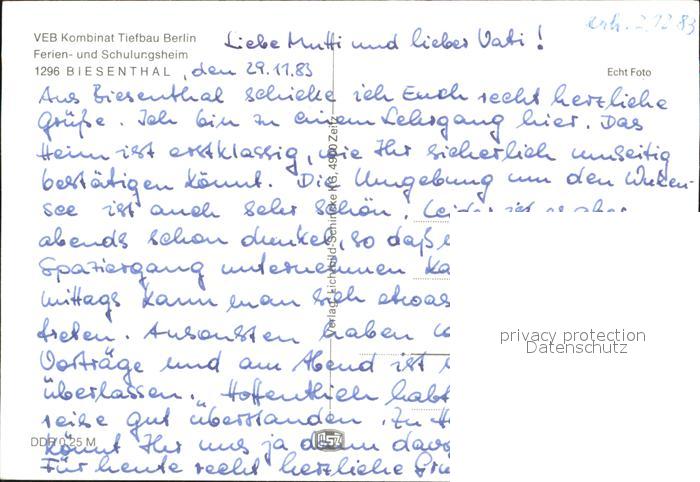 VEB Kombinat Tiefbau Berlin
Ferien- und Schulungsheim
1296 BIESENTHAL, den 29.11.83
erh. 2.12.83
Echt Foto
Liebe Mutti und lieber Vati!
Aus Biesenthal schicke ich Euch recht herzliche
Grüße. Ich bin zu einem Lehrgang hier. Das
Heim ist erstklassig, wie Ihr sicherlich umseitig
bestätigen könnt. Die Umgebung um den Wuken-
see ist auch sehr schön. Leider ist es aber
abends schon dunkel, so daß
Spaziergang unternehmen
mittags kann man sich etwas
treten. Ansonsten haben
Vorträge und am Abend ist
überlassen. Hoffentlich habt
reise gut überstanden. Zu
könnt Ihr uns ja dann
Für heute recht herzliche
Verlag: Lichtbild-Schincke KG, 4900 Zeitz
DDR 0,25 M
privacy protection
Datenschutz